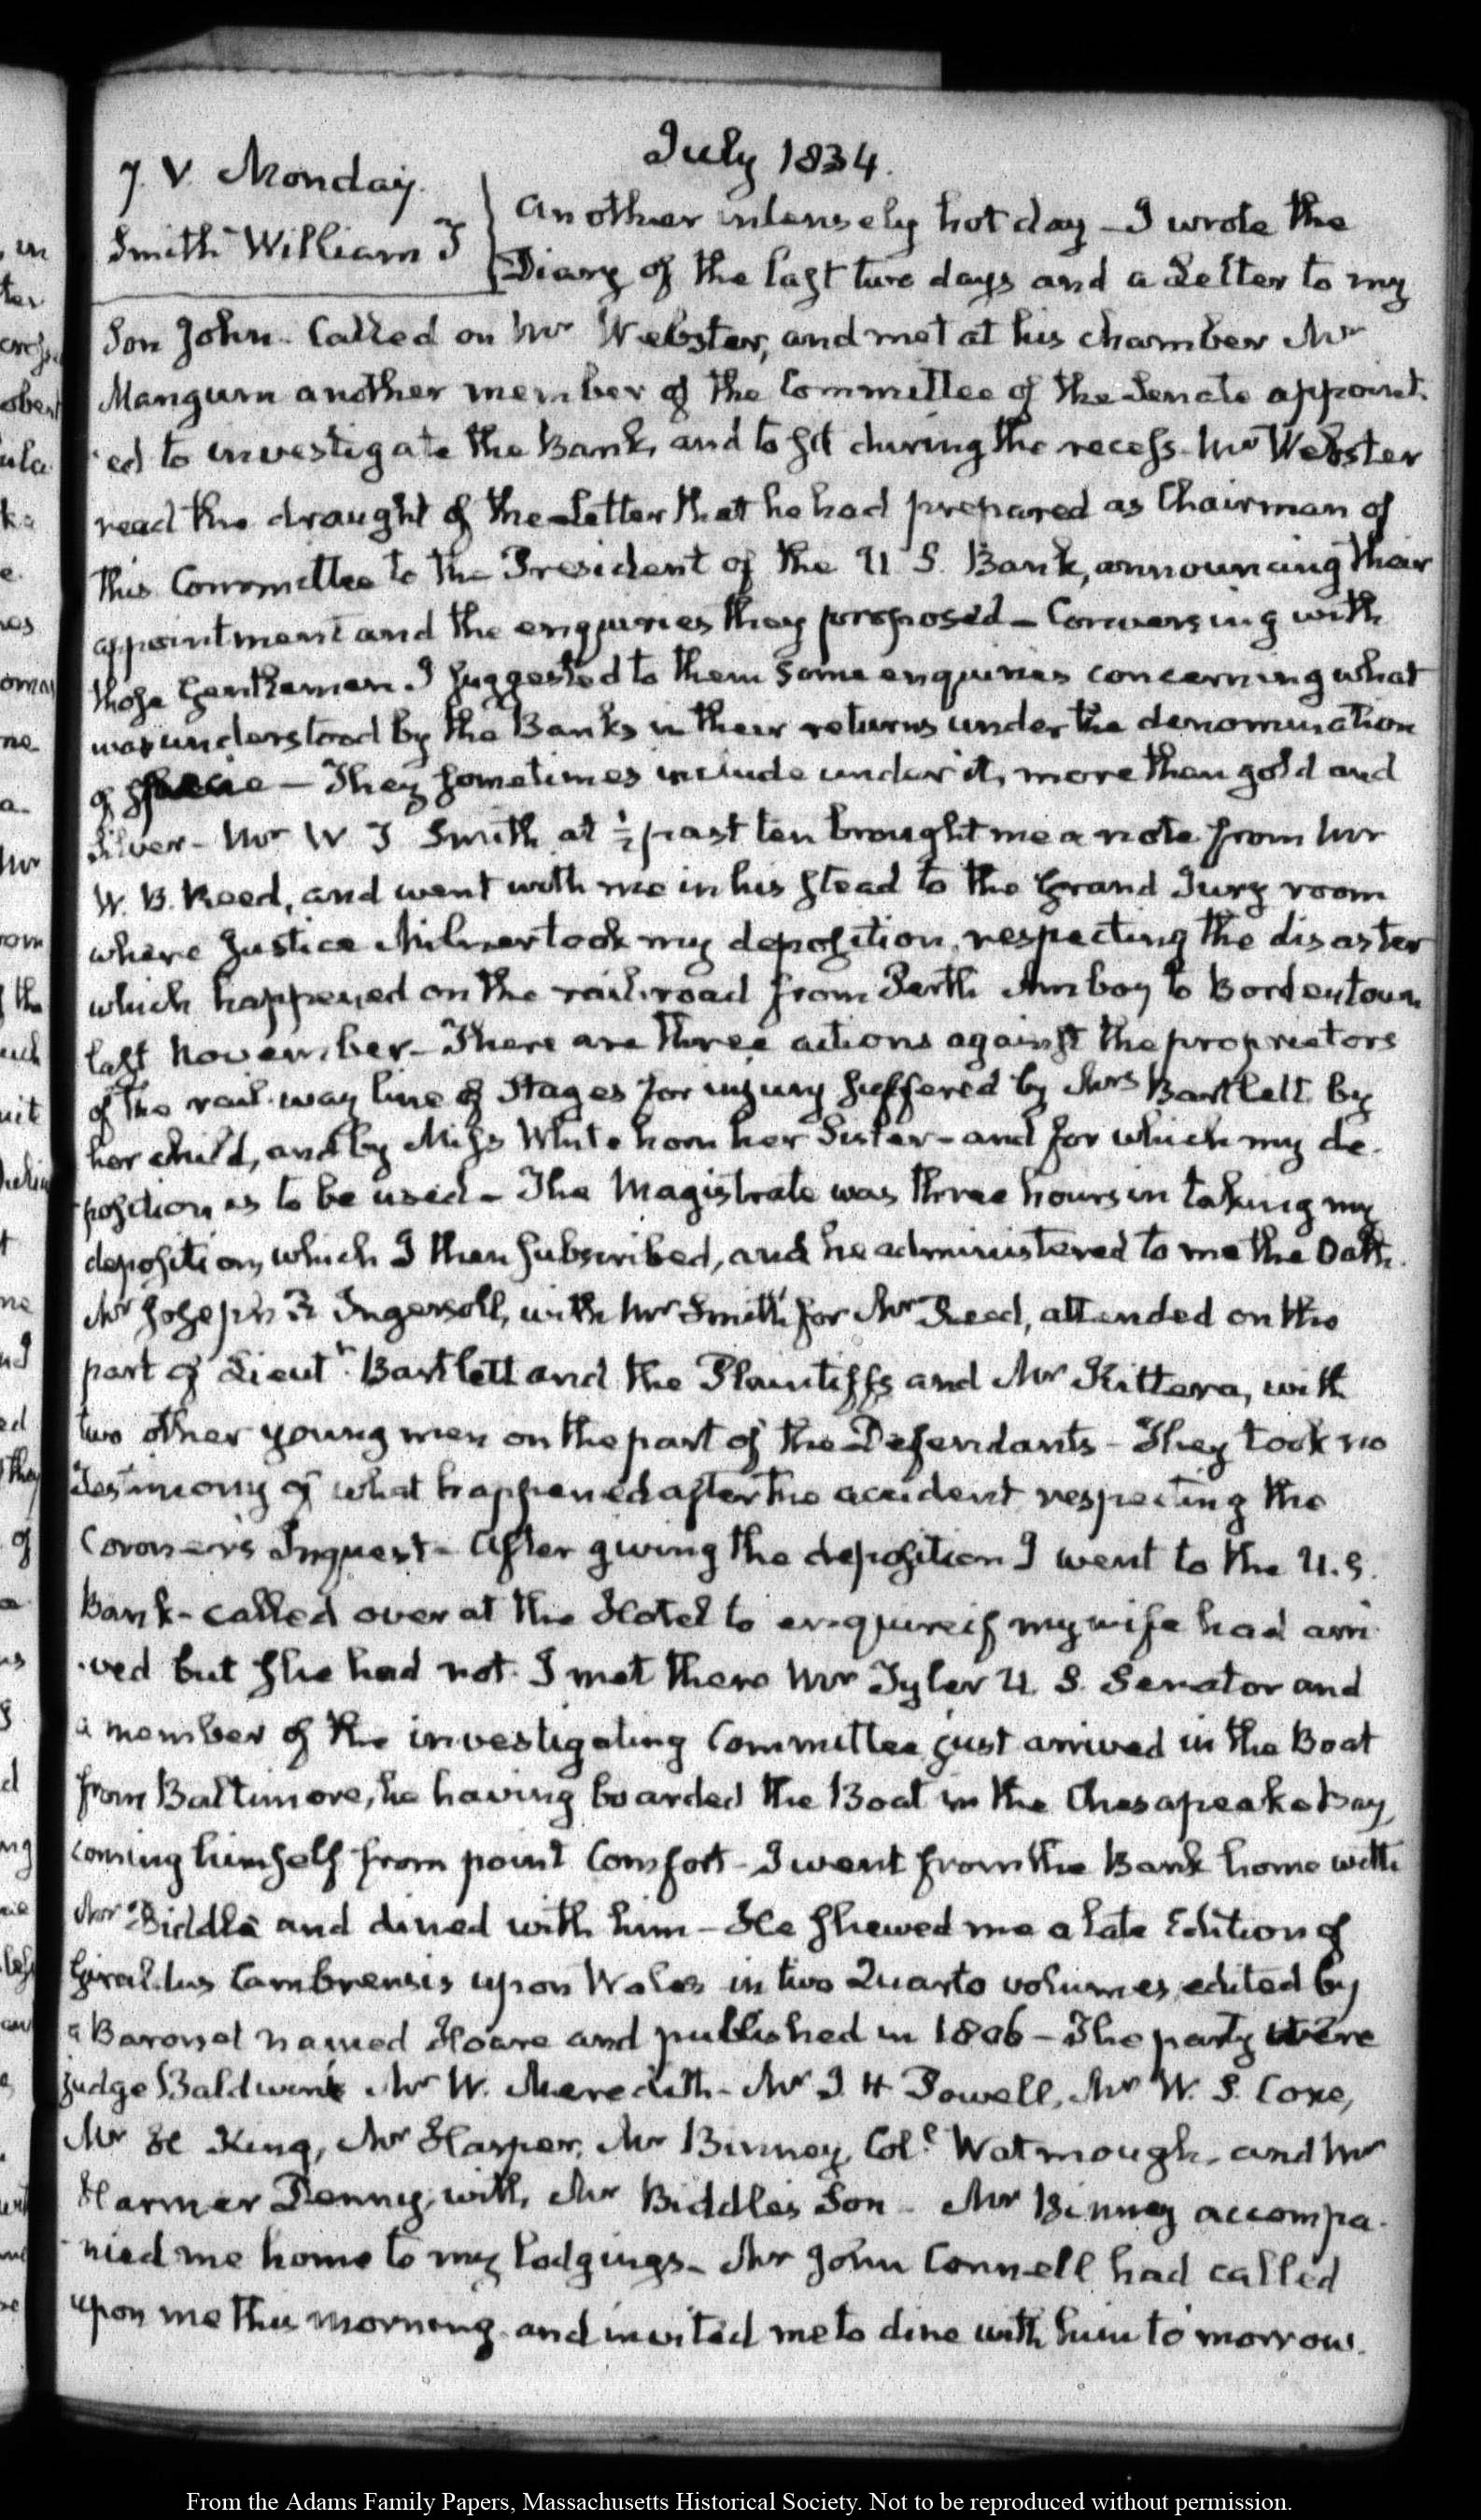 July 1834.
7. V. Monday.
Smith William J
Another intensely hot day – I wrote the
Diary of the last two days and a Letter to my
Son John. Called on Mr Webster, and met at his chamber Mr
Mangum another member of the Committee of the Senate appoint-
ed to investigate the Bank, and to sit during the recess. Mr Webster
read the draught of the Letter that he had prepared as Chairman of
this Committee to the President of the U S. Bank, announcing their
appointment and the enquiries they proposed – Conversing with
those Gentlemen I suggested to them some enquiries concerning what
was understood by the Banks in their returns under the denomination
of specie – They sometimes include under it, more than gold and
Silver – Mr W J Smith at ½ past ten brought me a note from Mr
W. B. Reed, and went with me in his stead to the Grand Jury room
where Justice Milnor took my deposition, respecting the disaster
which happened on the rail-road from Perth Amboy to Bordentown
last November – There are three actions against the proprietors
of the rail-way line of Stages for injury suffered by Mrs Bartlett by
her child, and by Miss Whitehorn her Sister – and for which my de-
position is to be used – The Magistrate was three hours in taking my
deposition, which I then subscribed, and he administered to me the Oath.
Mr Joseph R Ingersoll, with Mr Smith for Mr Reed, attended on the
part of Lieutt. Bartlett and the Plaintiffs and Mr Kittera, with
two other young men on the part of the Defendants – They took no
Testimony of what happened after the accident respecting the
Coroner's Inquest – After giving the deposition I went to the U.S.
Bank – called over at the Hotel to enquire if my wife had arri-
ved but she had not. I met there Mr Tyler U. S. Senator and
a member of the investigating Committee just arrived in the Boat
from Baltimore, he having boarded the Boat in the Chesapeake Bay,
coming himself from point Comfort – I went from the Bank home with
Mr Biddle and dined with him – He shewed me a late Edition of
Giraldus Cambrensis upon Wales in two Quarto volumes, edited by
a Baronet named Hoare and published in 1806 – The party were
judge Baldwin Mr W. Meredith – Mr J. H Powell, Mr W. S. Coxe,
Mr H King, Mr Harper, Mr Binney, Coll Watmough, and Mr
Harmar Denny, with Mr Biddles Son – Mr Binney accompa-
nied me home to my lodgings – Mr John Connell had called
upon me this morning and invited me to dine with him to morrow.
From the Adams Family Papers, Massachusetts Historical Society. Not to be reproduced without permission.